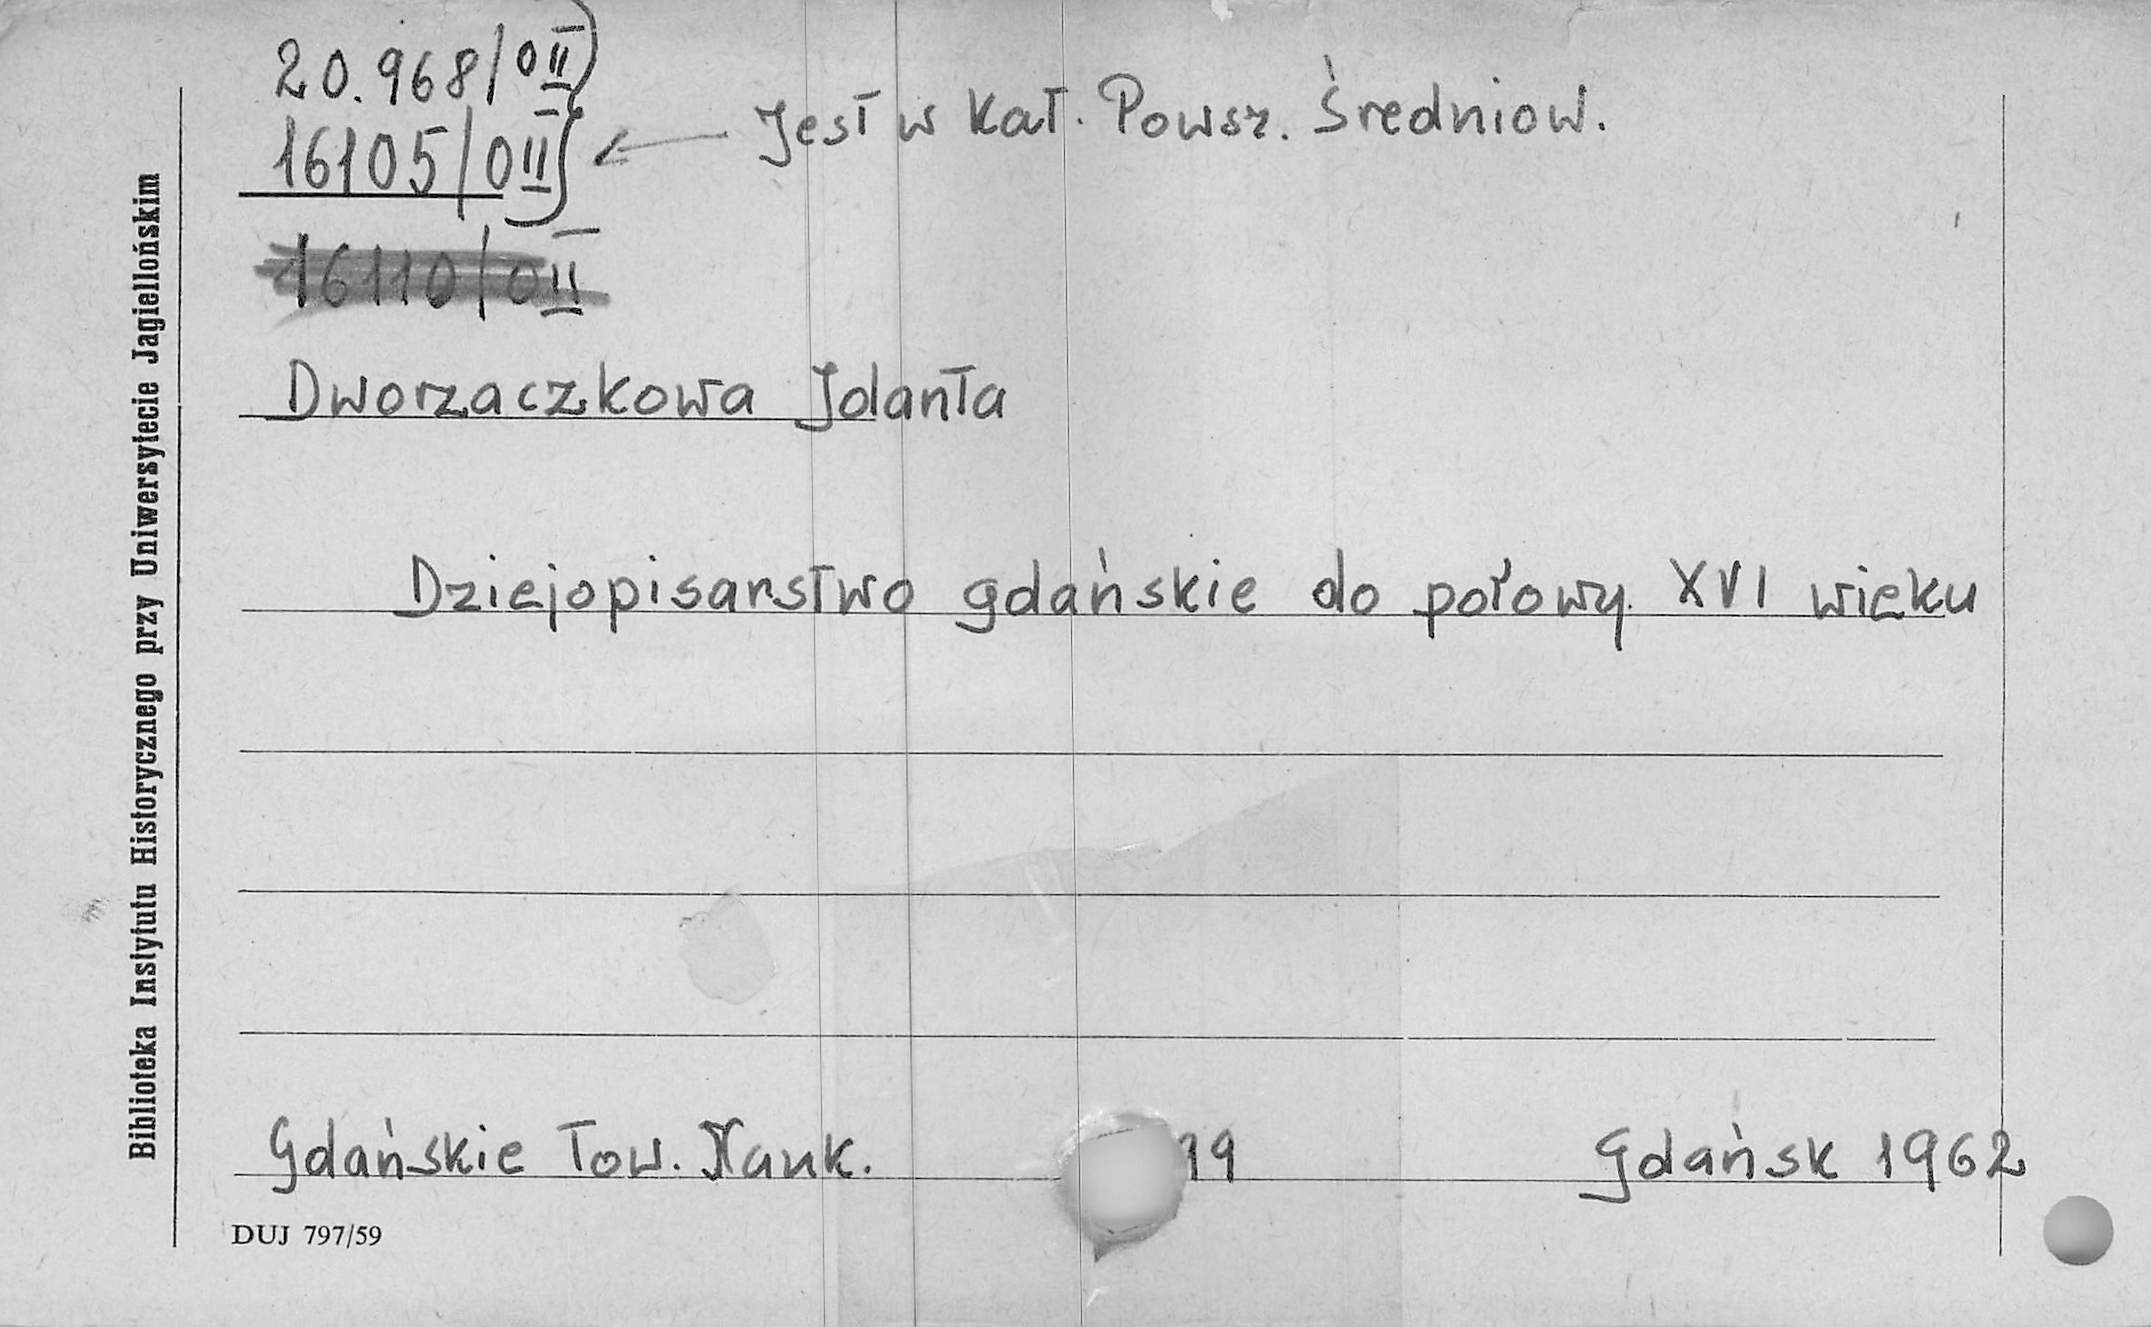 20.968/0II
16105/0II
Jest w Kat. Powsz. Średniow.
16110/0II
Dworzaczkowa Jolanta
Dziejopisarstwo gdańskie do połowy XVI wieku
Gdańskie Tow. Nauk. 19 Gdańsk 1962
DUJ 797/59
Biblioteka Instytutu Historycznego przy Uniwersytecie Jagiellońskim